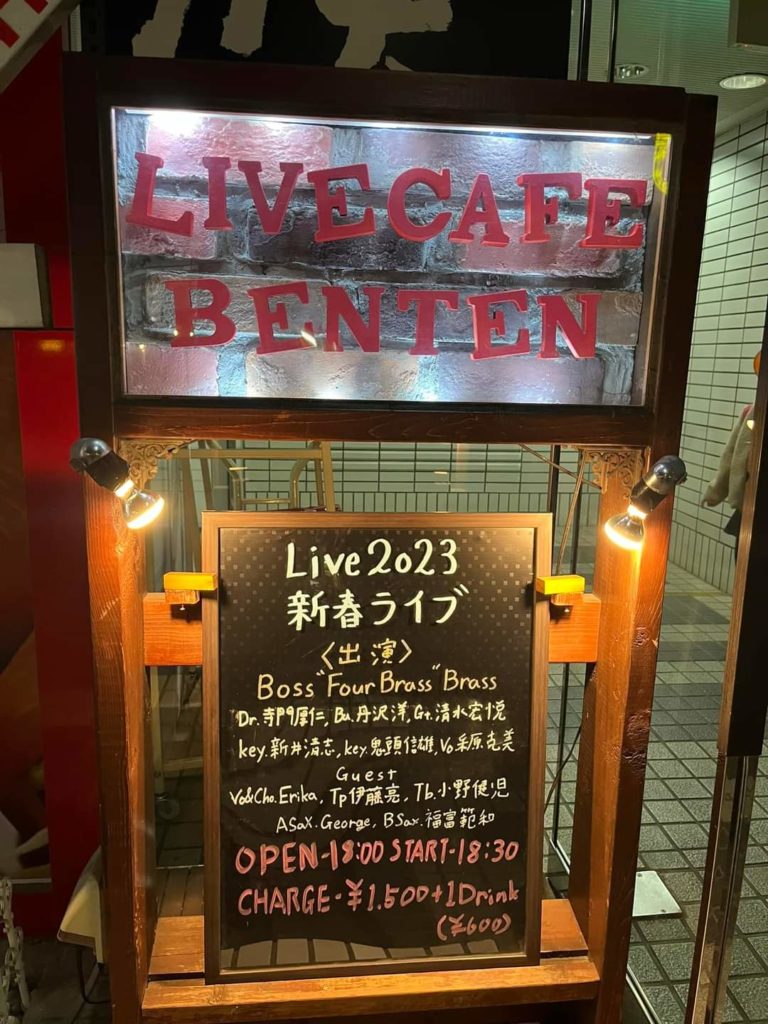 LIVE CAFE
BENTEN
Live2023
新春ライブ
〈出演〉
Boss "Four Brass" Brass
Dr.寺門厚仁, Ba.丹沢洋, Gt.清水宏悦
key.新井清志, key.鬼頭信雄, Vo.采原克美
Guest
Vo&Cho.Erika, Tp伊藤亮, Tb.小野健児
ASax.George, BSax.福富範和
OPEN-18:00 START-18:30
CHARGE-¥1.500+1Drink
(¥600)